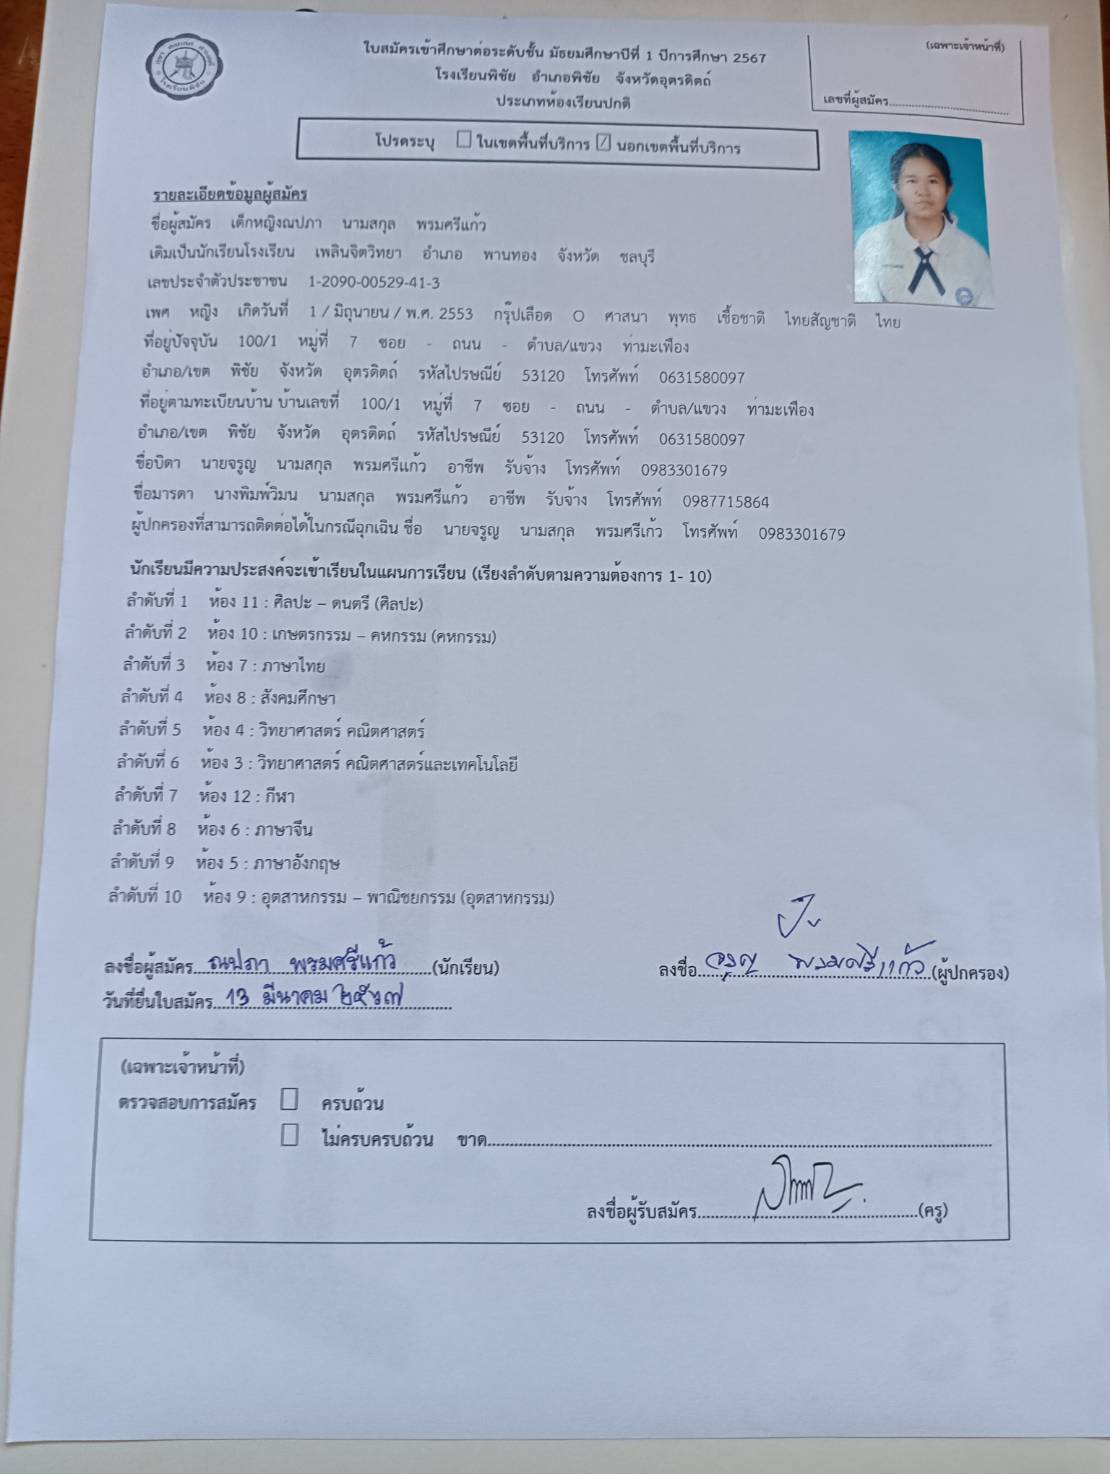 ใบสมัครเข้าศึกษาต่อระดับชั้น มัธยมศึกษาปีที่ 1 ปีการศึกษา 2567
(เฉพาะเจ้าหน้าที่)
โรงเรียนพิชัย อำเภอพิชัย จังหวัดอุตรดิตถ์
ประเภทห้องเรียนปกติ
เลขที่ผู้สมัคร
โปรดระบุ ในเขตพื้นที่บริการ นอกเขตพื้นที่บริการ
รายละเอียดข้อมูลผู้สมัคร
ชื่อผู้สมัคร เด็กหญิงณปภา นามสกุล พรมศรีแก้ว
เดิมเป็นนักเรียนโรงเรียน เพลินจิตวิทยา อำเภอ พานทอง จังหวัด ชลบุรี
เลขประจำตัวประชาชน 1-2090-00529-41-3
เพศ หญิง เกิดวันที่ 1 / มิถุนายน / พ.ศ. 2553 กรุ๊ปเลือด O ศาสนา พุทธ เชื้อชาติ ไทยสัญชาติ ไทย
ที่อยู่ปัจจุบัน 100/1 หมู่ที่ 7 ซอย - ถนน - ตำบล/แขวง ท่ามะเฟือง
อำเภอ/เขต พิชัย จังหวัด อุตรดิตถ์ รหัสไปรษณีย์ 53120 โทรศัพท์ 0631580097
ที่อยู่ตามทะเบียนบ้าน บ้านเลขที่ 100/1 หมู่ที่ 7 ซอย - ถนน - ตำบล/แขวง ท่ามะเฟือง
อำเภอ/เขต พิชัย จังหวัด อุตรดิตถ์ รหัสไปรษณีย์ 53120 โทรศัพท์ 0631580097
ชื่อบิดา นายจรูญ นามสกุล พรมศรีแก้ว อาชีพ รับจ้าง โทรศัพท์ 0983301679
ชื่อมารดา นางพิมพ์วิมน นามสกุล พรมศรีแก้ว อาชีพ รับจ้าง โทรศัพท์ 0987715864
ผู้ปกครองที่สามารถติดต่อได้ในกรณีฉุกเฉิน ชื่อ นายจรูญ นามสกุล พรมศรีเก้ว โทรศัพท์ 0983301679
นักเรียนมีความประสงค์จะเข้าเรียนในแผนการเรียน (เรียงลำดับตามความต้องการ 1- 10)
ลำดับที่ 1 ห้อง 11 : ศิลปะ – ดนตรี (ศิลปะ)
ลำดับที่ 2 ห้อง 10 : เกษตรกรรม – คหกรรม (คหกรรม)
ลำดับที่ 3 ห้อง 7 : ภาษาไทย
ลำดับที่ 4 ห้อง 8 : สังคมศึกษา
ลำดับที่ 5 ห้อง 4 : วิทยาศาสตร์ คณิตศาสตร์
ลำดับที่ 6 ห้อง 3 : วิทยาศาสตร์ คณิตศาสตร์และเทคโนโลยี
ลำดับที่ 7 ห้อง 12 : กีฬา
ลำดับที่ 8 ห้อง 6 : ภาษาจีน
ลำดับที่ 9 ห้อง 5 : ภาษาอังกฤษ
ลำดับที่ 10 ห้อง 9 : อุตสาหกรรม – พาณิชยกรรม (อุตสาหกรรม)
ลงชื่อผู้สมัคร ณปภา พรมศรีแก้ว (นักเรียน)
ลงชื่อ จรูญ พรมศรีแก้ว (ผู้ปกครอง)
วันที่ยื่นใบสมัคร 13 มีนาคม ๒๕๖๗
(เฉพาะเจ้าหน้าที่)
ตรวจสอบการสมัคร ครบถ้วน
ไม่ครบครบถ้วน ขาด
ลงชื่อผู้รับสมัคร (ครู)